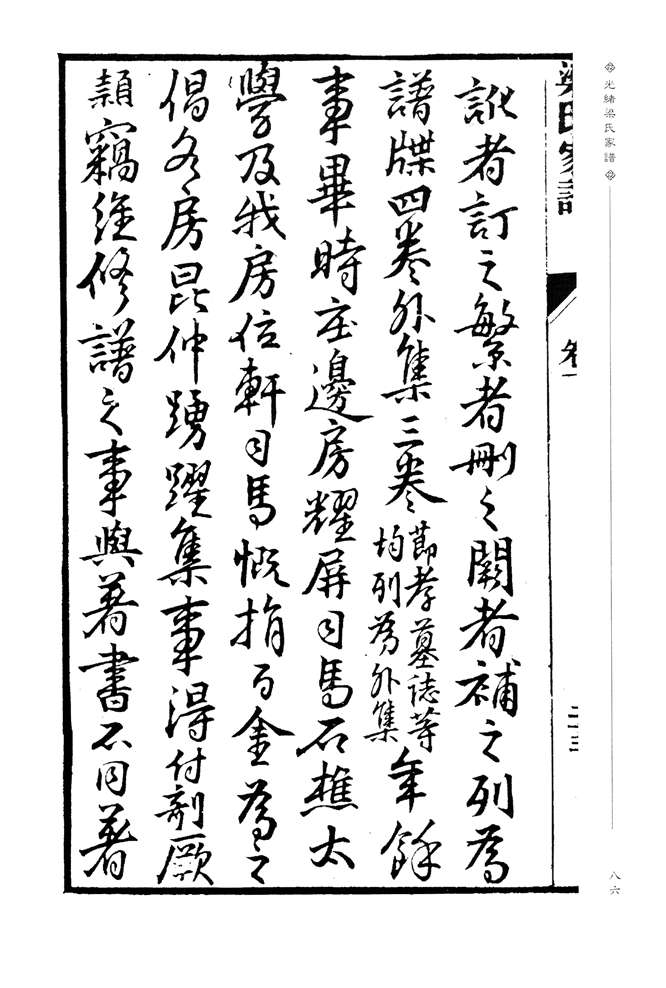 光緒梁氏家譜
八六
梁氏家譜
卷一
二十三
訛者訂之繁者刪之闕者補之列為
譜牒四卷外集三卷
節孝墓誌等
均列為外集
年餘
事畢時庄邊房耀屏司馬石樵太
學及我房位軒司馬慨捐百金為之
倡各房昆仲踴躍集事得付剞厥
顈竊維修譜之事與著書不同著